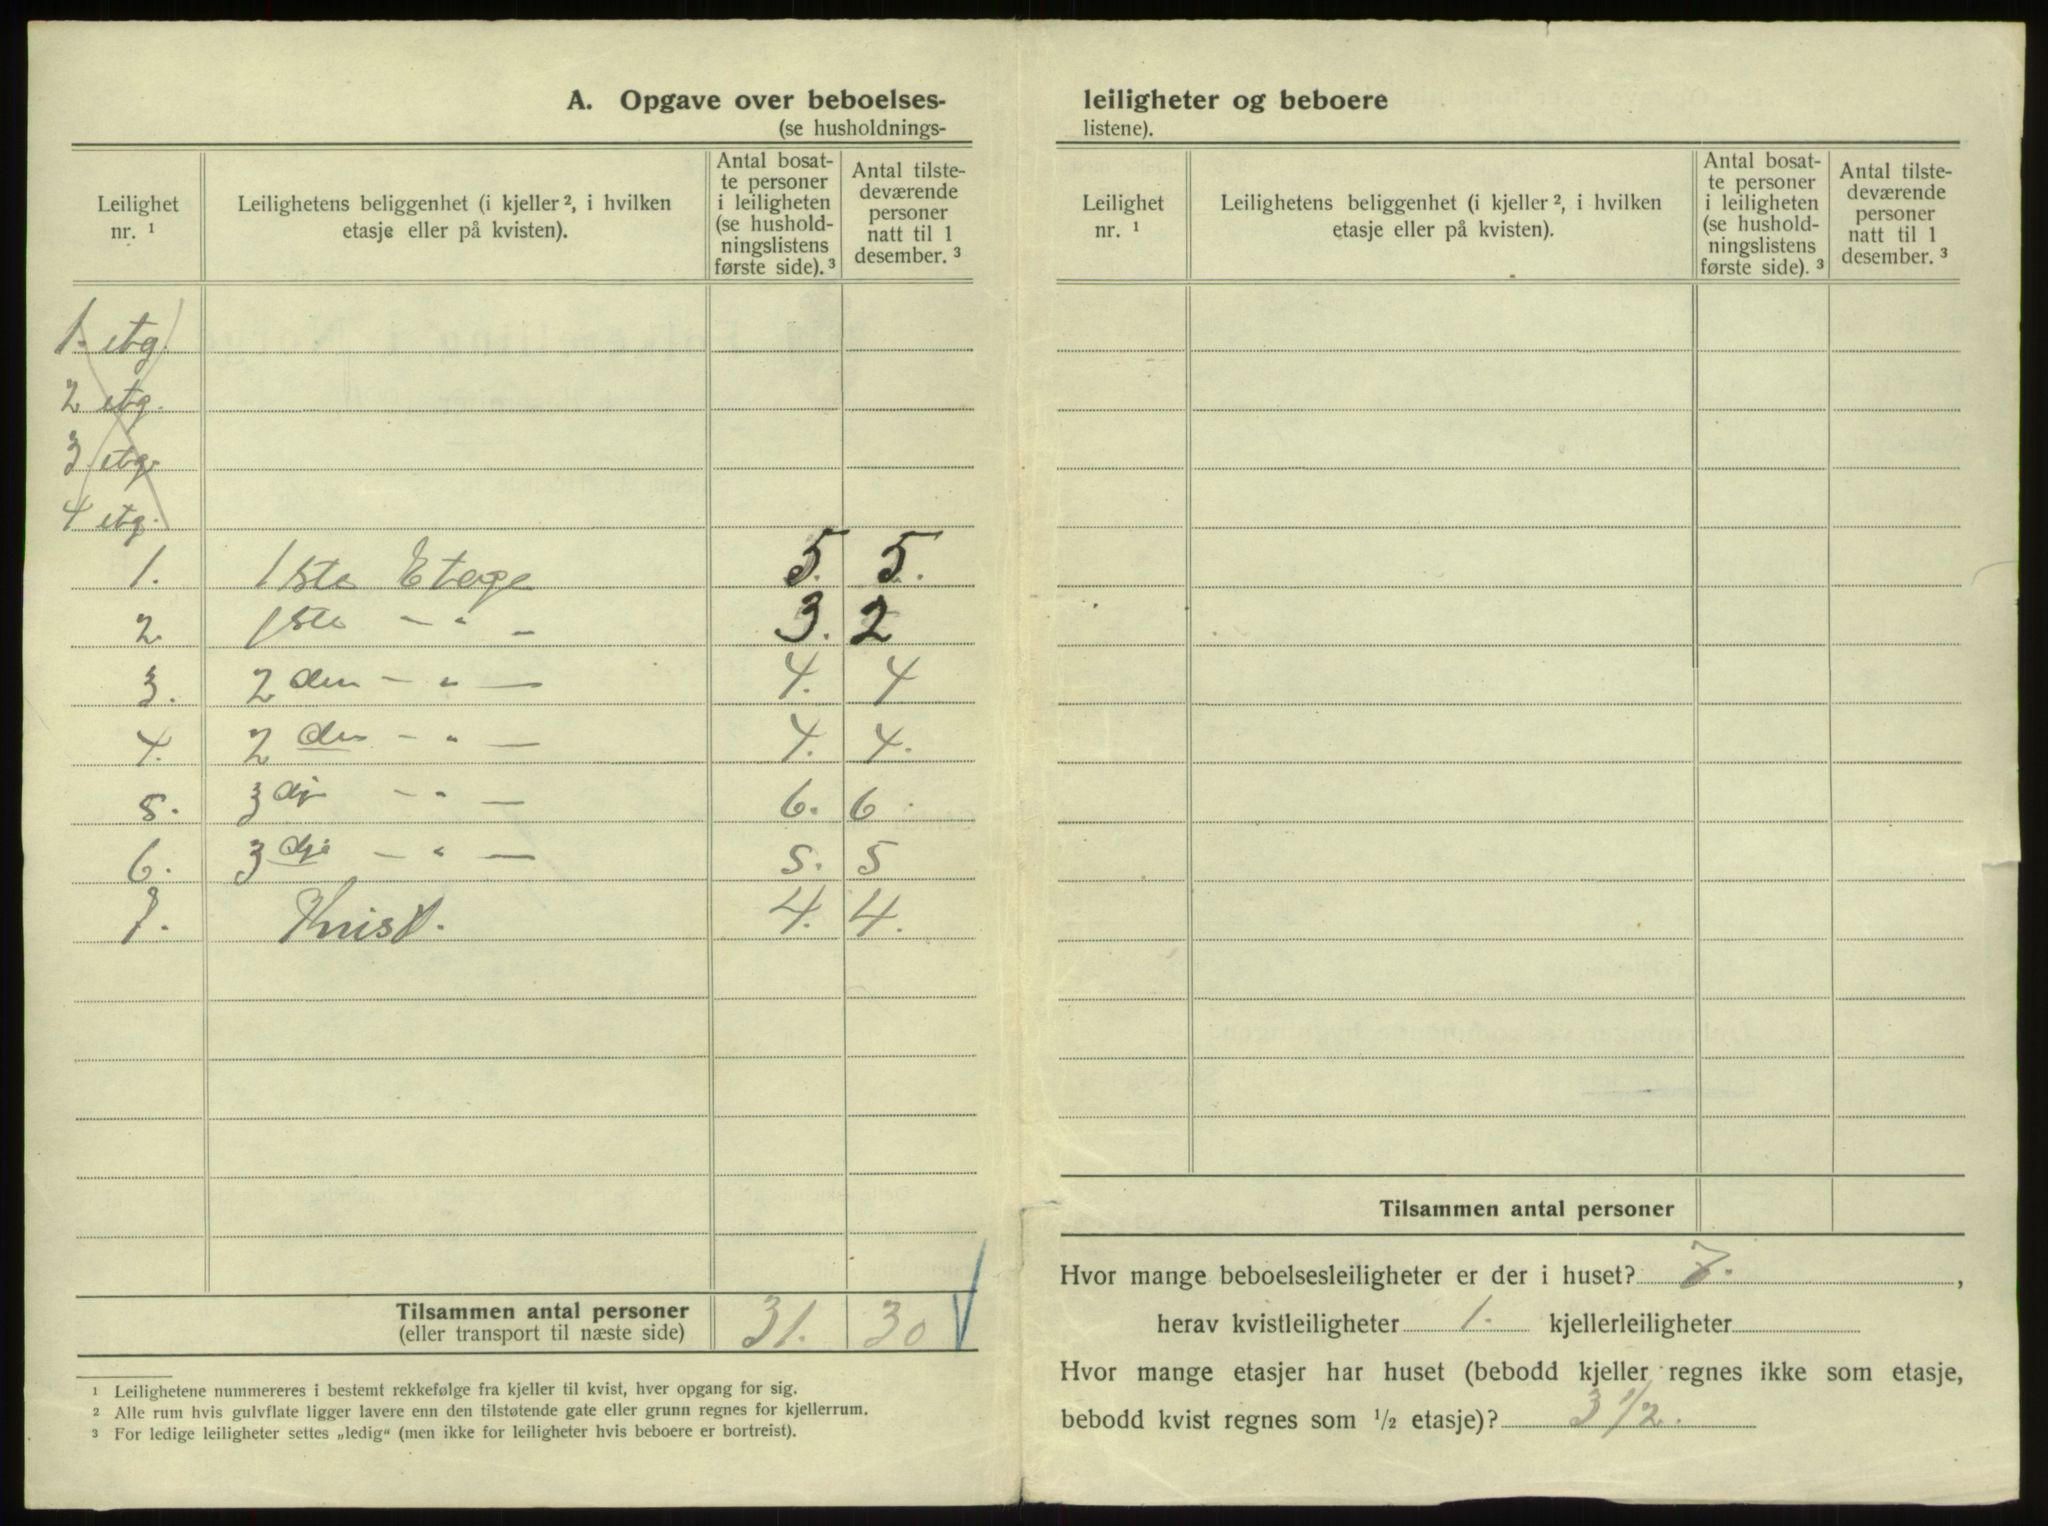 A. Opgave over beboelses-
(se husholdnings-
Leilighet nr. ¹
Leilighetens beliggenhet (i kjeller ², i hvilken etasje eller på kvisten).
Antal bosat-
te personer
i leiligheten
(se hushold-
ningslistens
første side). ³
Antal tilste-
deværende
personer
natt til 1
desember. ³
1. etg.
2 etg.
3 etg.
4 etg.
1. 1ste Etage 5. 5.
2. 1ste — „ — 3. 2
3. 2den — „ — 4. 4
4. 2den — „ — 4. 4.
5. 3dje — „ — 6. 6.
6. 3dje — „ — 5. 5
7. Kvist. 4. 4.
Tilsammen antal personer 31. 30
(eller transport til næste side)
¹ Leilighetene nummereres i bestemt rekkefølge fra kjeller til kvist, hver opgang for sig.
² Alle rum hvis gulvflate ligger lavere enn den tilstøtende gate eller grunn regnes for kjellerrum.
³ For ledige leiligheter settes „ledig“ (men ikke for leiligheter hvis beboere er bortreist).
leiligheter og beboere
listene).
Leilighet nr. ¹
Leilighetens beliggenhet (i kjeller ², i hvilken etasje eller på kvisten).
Antal bosat-
te personer
i leiligheten
(se hushold-
ningslistens
første side). ³
Antal tilste-
deværende
personer
natt til 1
desember. ³
Tilsammen antal personer
Hvor mange beboelsesleiligheter er der i huset? 7.,
herav kvistleiligheter 1. kjellerleiligheter
Hvor mange etasjer har huset (bebodd kjeller regnes ikke som etasje,
bebodd kvist regnes som ¹/₂ etasje)? 3 1/2.